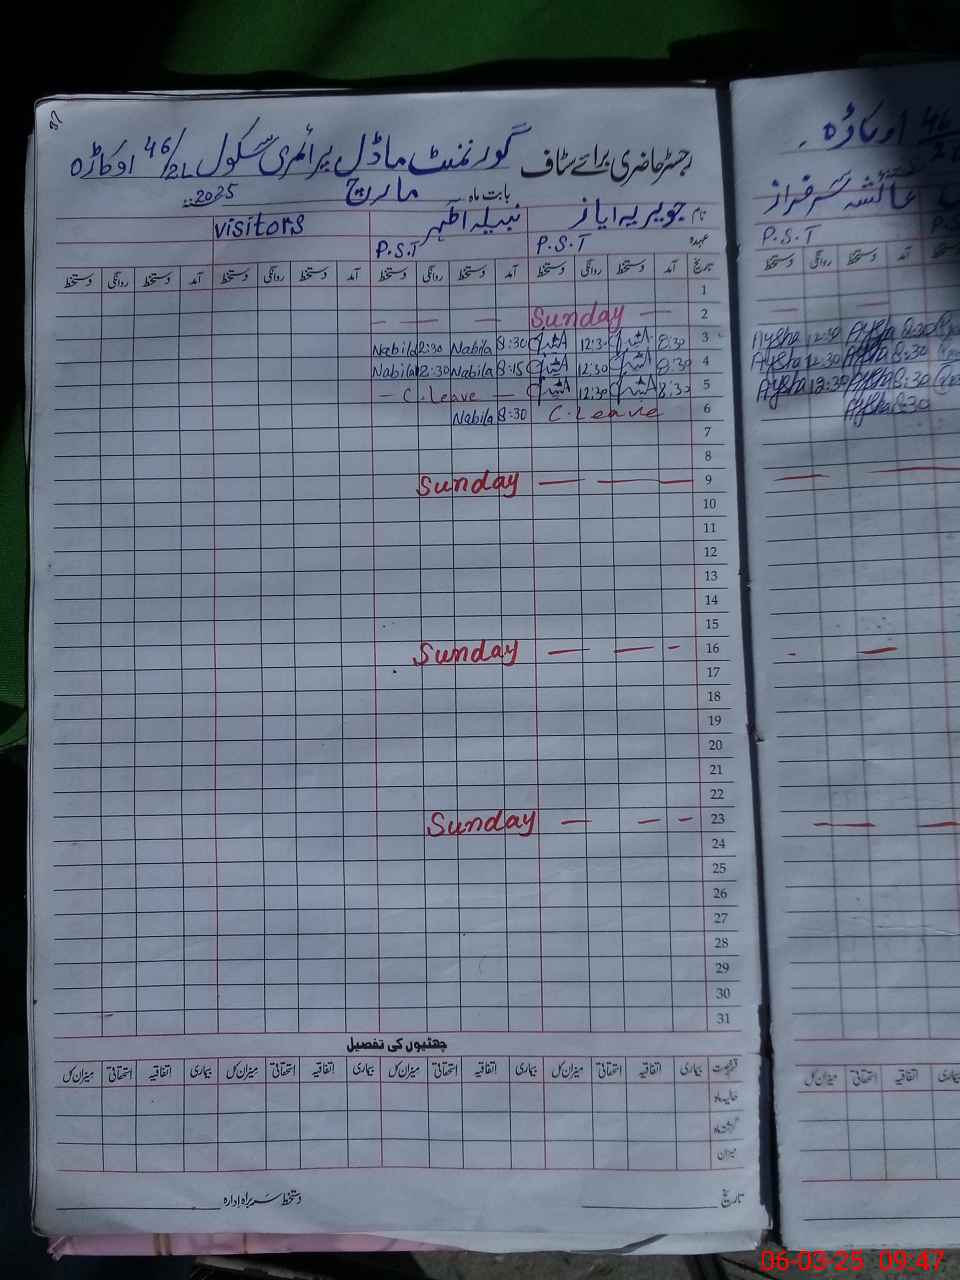 37
رجسٹر حاضری برائے سٹاف گورنمنٹ ماڈل پرائمری سکول 46/2L اوکاڑہ
بابت ماہ مارچ 2025
نام جویریہ ایاز نبیلہ اظہر visitors
عہدہ P.S.T P.S.T
تاریخ آمد دستخط روانگی دستخط آمد دستخط روانگی دستخط آمد دستخط روانگی دستخط آمد دستخط روانگی دستخط
1
2 — Sunday — — —
3 8:30 12:30 8:30 Nabila 12:30 Nabila
4 8:30 12:30 8:15 Nabila 12:30 Nabila
5 8:30 12:30 — C.Leave —
6 C.Leave 8:30 Nabila
7
8
9 — — — Sunday
10
11
12
13
14
15
16 - — — Sunday
17
18
19
20
21
22
23 - — — Sunday
24
25
26
27
28
29
30
31
چھٹیوں کی تفصیل
قسم رخصت بیماری اتفاقیہ استحقاقی میزان کل بیماری اتفاقیہ استحقاقی میزان کل بیماری اتفاقیہ استحقاقی میزان کل بیماری اتفاقیہ استحقاقی میزان کل
حالیہ ماہ
گزشتہ ماہ
میزان
تاریخ دستخط سربراہ ادارہ
46 اوکاڑہ
عائشہ سرفراز
P.S.T
آمد دستخط روانگی دستخط
8:30 Aysha 12:30 Aysha
8:30 Aysha 12:30 Aysha
8:30 Aysha 12:30 Aysha
8:30 Aysha
بیماری اتفاقیہ استحقاقی میزان کل
06-03-25 09:47